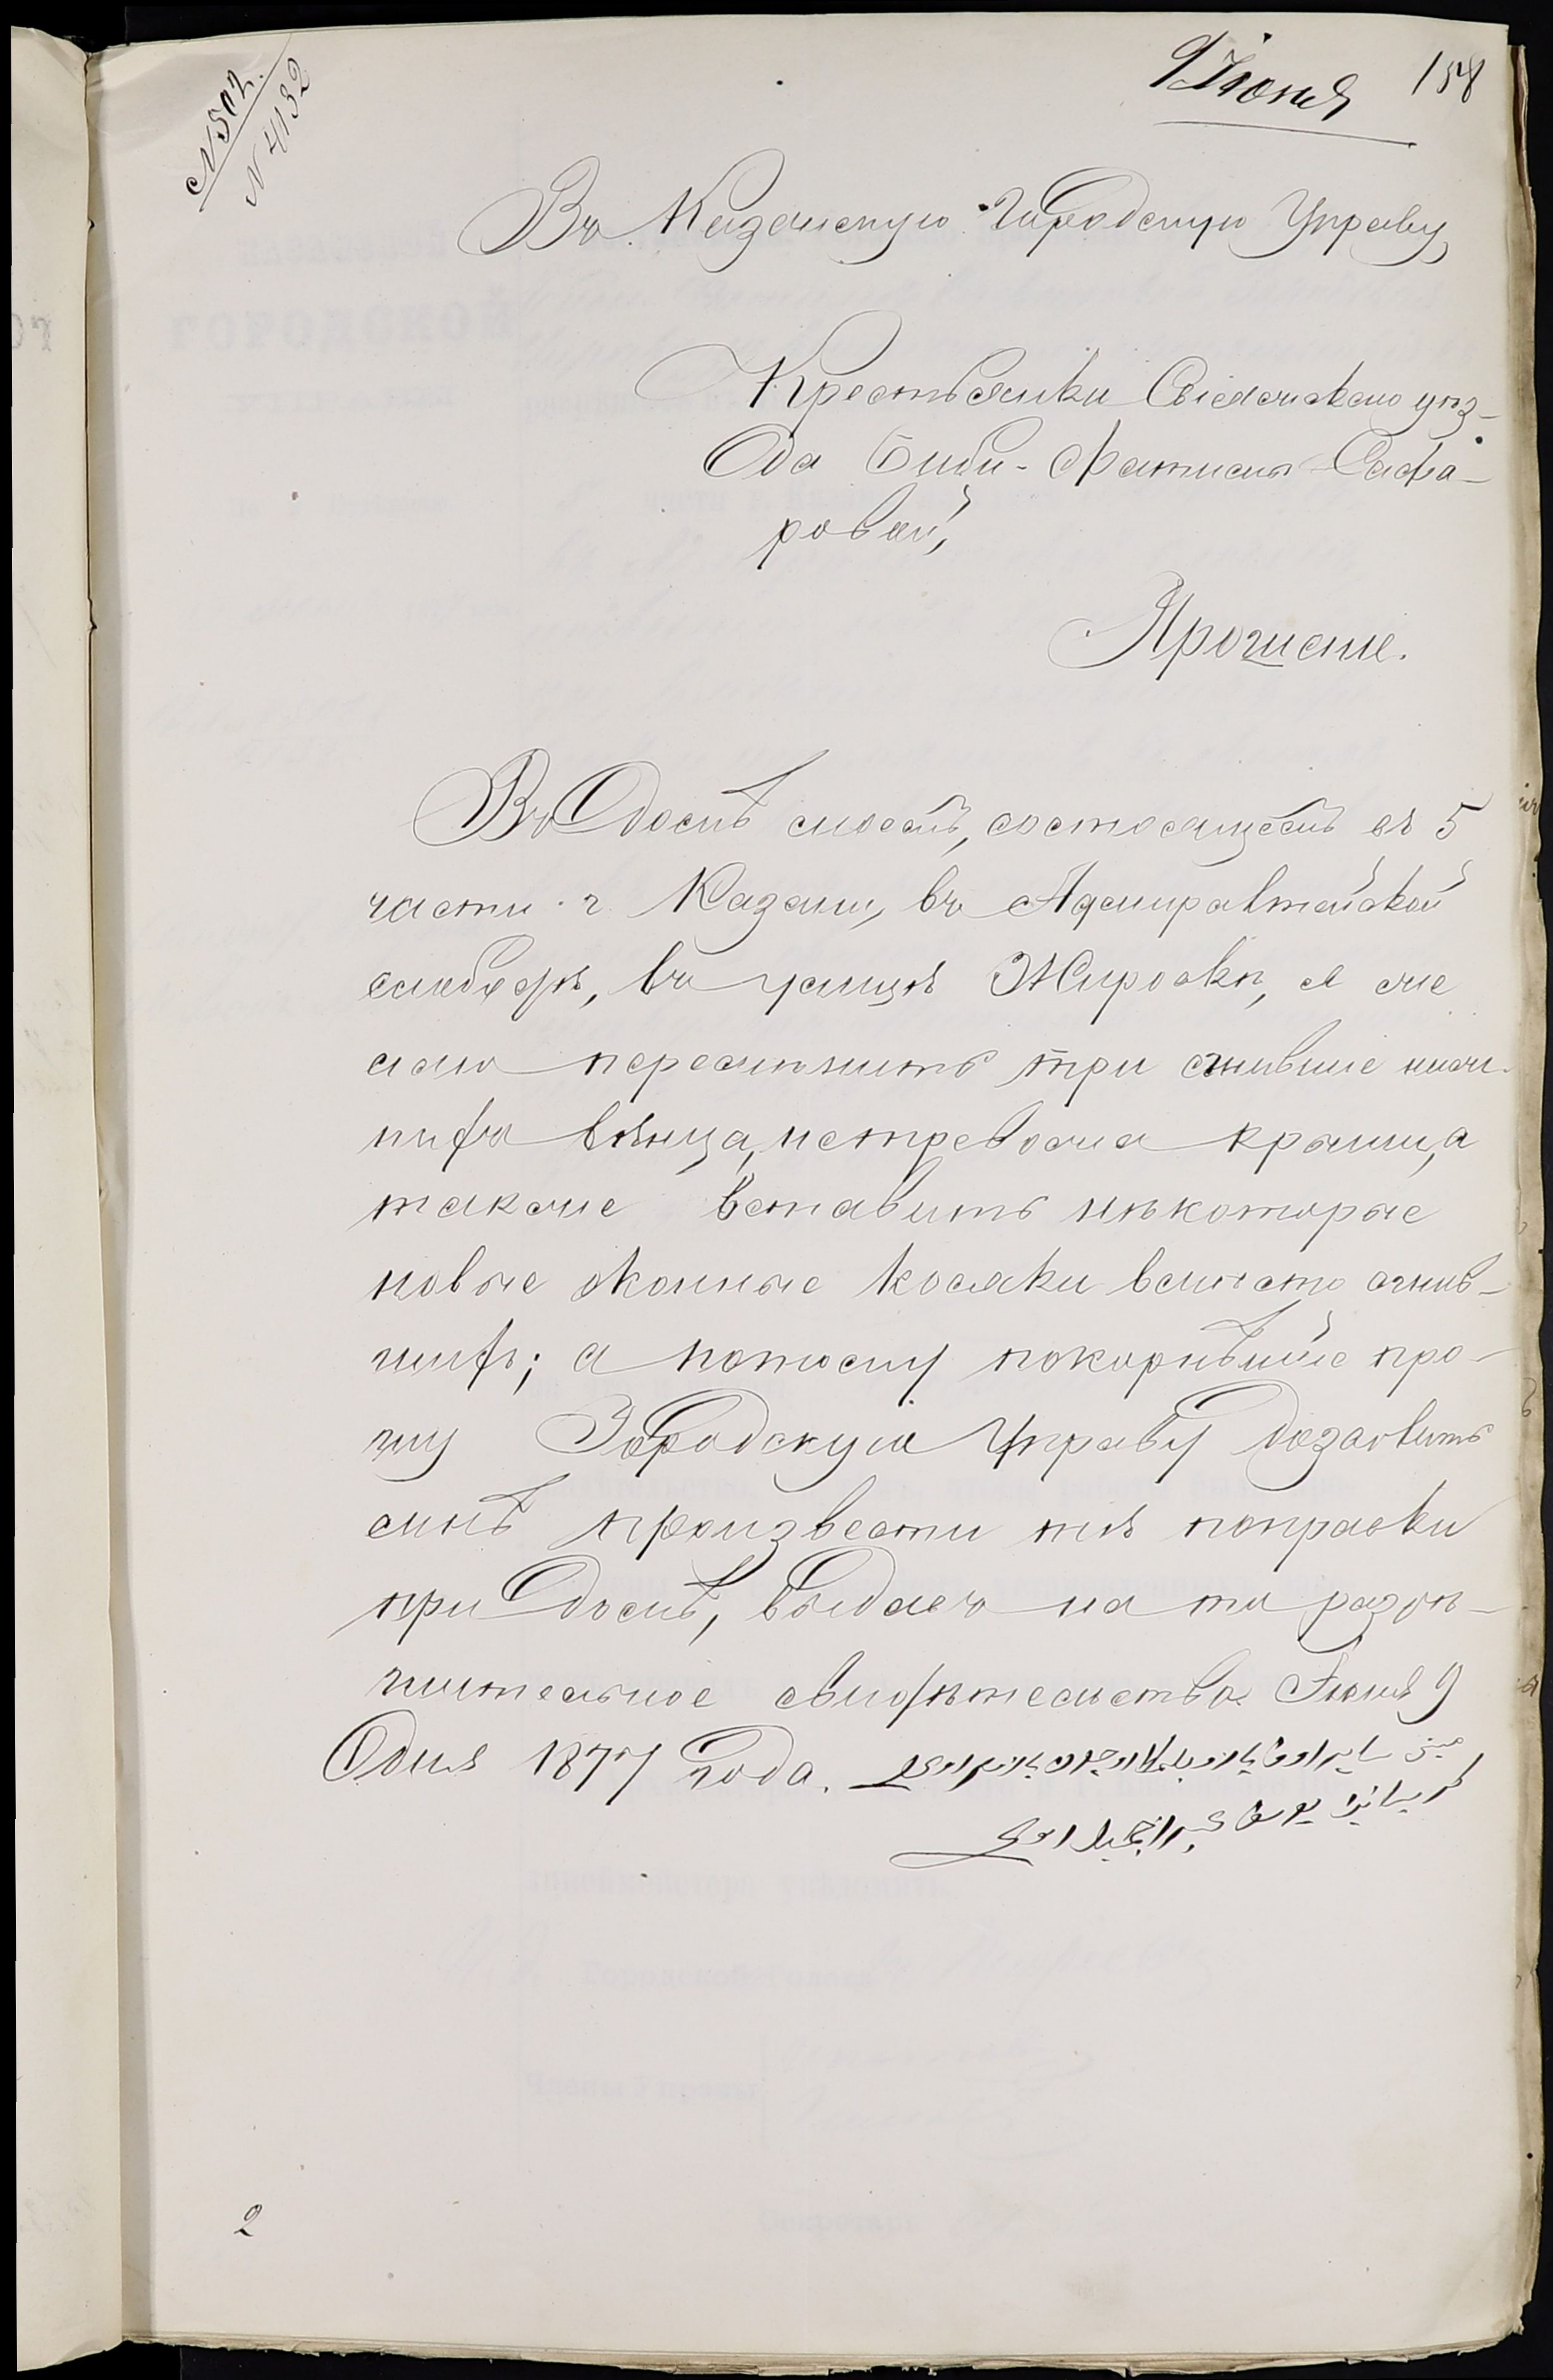 9 Іюня 158
№ 502.
№ 4132
Въ Казанскую Городскую Управу,
Крестьянки Свіяжскаго уѣз-
да Биби-Фатимы Сафа-
ровой,
Прошеніе.
Въ домѣ моемъ, состоящемъ въ 5
части г. Казани, въ Адмиралтейской
слободѣ, въ улицѣ Жировкѣ, я же
лаю перемѣнить три сгнившіе ниж-
нихъ вѣнца, нетревожа крыши, а
также вставить нѣкоторые
новые оконные косяки вмѣсто сгнив-
шихъ; а потому покорнѣйше про-
шу Городскую Управу дозволить
мнѣ произвести тѣ поправки
при домѣ, выдавъ на то разрѣ-
шительное свидѣтельство. Іюня 9
дня 1877 года.
2